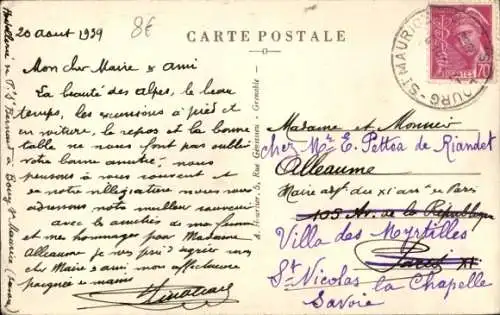 20 aout 1939
8€
CARTE POSTALE
Mon cher Maire & ami
La beauté des alpes, le beau
temps, les excursions à pied et
en voiture, le repos et la bonne
table ne nous font pas oublier
votre bonne amitié, nous
pensons à vous souvent et
de notre villégiature nous vous
adressons notre meilleur souvenir
avec les amitiés de ma femme
et mes hommages pour Madame
Alleaume je vous prie d'agréer mon
cher Maire & ami mon affectueuse
poignée de mains
Hôtellerie du Pt St Bernard à Bourg St Maurice (Savoie)
Grenoble
BOURG-ST MAURICE
70
Madame et Monsieur
chez Mr E. Pettoa de Riandet
Alleaume
Maire adjt du XI arr de Paris
103 Av. de la République
Villa des Myrtilles
Paris XI
St Nicolas la Chapelle
Savoie